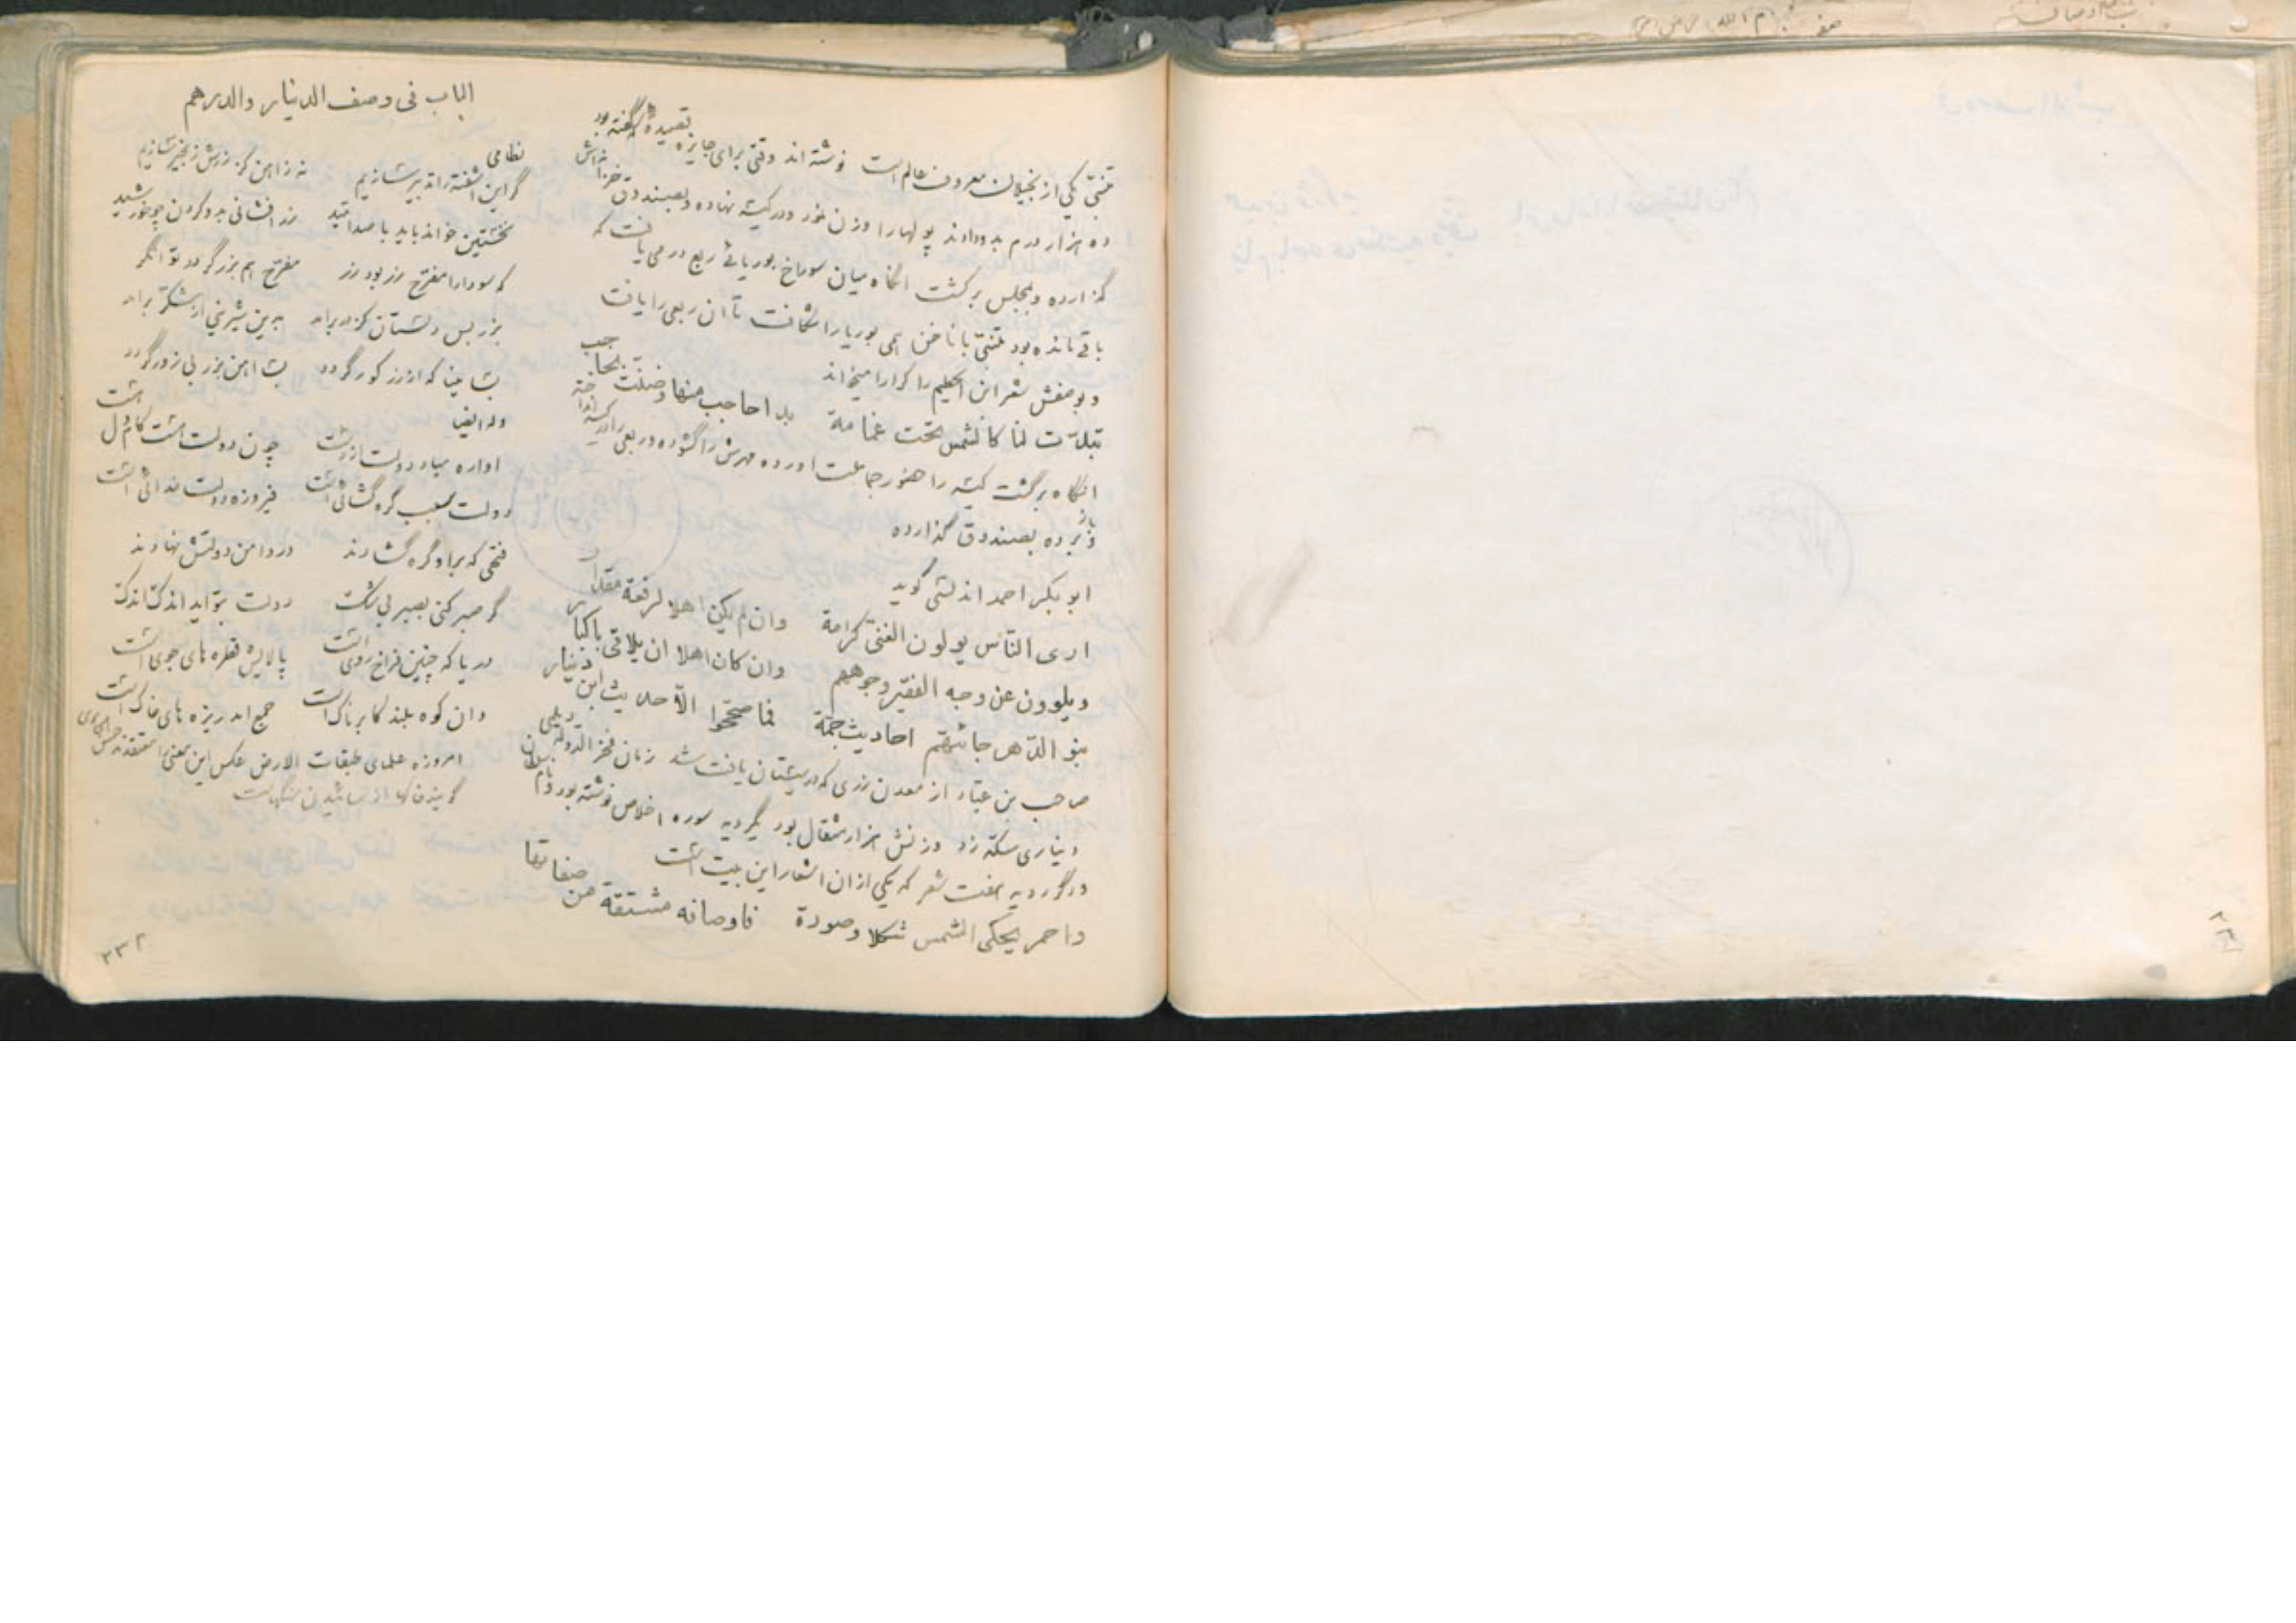 الباب فی وصف الدینار والدرهم
متنبّی یکی از بخیلان معروف عالم است نوشته اند وقتی برای جایزه قصیدهٔ که گفته بود
ده هزار درم بدو دادند پولها را وزن خود در کیسه نهاده و بصندوق خزانه اش
گذارده و بمجلس برگشت انگاه میان سوراخ بوریائی ربع درمی یافت که
باقی مانده بود متنبّی با ناخن همی بوریا را شکافت تا ان ربعی را یافت
و بو صفش شعر ابن الحطیم را کرارا میخواند
تبدّت لنا کالشمس تحت غمامة بدا حاجب منها وضنّت بحاجب
انگاه برگشت کیسه را حضور جماعت اورده مهرش را گشوده و ربعی را در کیسه انداخته
و باز برده بصندوق گذارده
ابوبکر احمد اندلسی گوید
اری النّاس یولون الغنیّ کرامة وان لم یکن اهلا لرفعة مقدار
ویلوون عن وجه الفقیر وجوههم وان کان اهلا ان یلاقی باکبار
بنو الدّهر جائتهم احادیث جمّة فما صحّحوا الّا حدیث ابن دینار
صاحب بن عبّاد از معدن زری که در سیستان یافت شد زمان فخر الدّوله دیلمی
دیناری سکّه زد وزنش هزار مثقال بود یکرویه سوره اخلاص نوشته بود و نام سلطان
در گرویه هفت شعر که یکی از ان اشعار این بیت است
واحمر یحکی الشمس شکلا وصورة فاوصافه مشتقة من صفاتها
نظامی
گر این اشفته را تدبیر سازیم نه زاهن کز زرش زنجیر سازیم
نخستین خواند باید با صد امّید زر افشانی بدو کردن چو خورشید
که سودا را مفرّح زر بود زر مفرّح هم بزر گردد توانگر
بزر بس دلستان کز در براید بدین شیرینی از شکّر براید
بسا بینا که از زر کور گردد بسا اهن بزر بی زور گردد
وله ایضا
اواره مباد دولت از دست چون دولت هست کام دل هست
دولت سبب گره گشائی است فیروزه دولت خدائی است
فتحی که براو گره گشادند در دامن دولتش نهادند
گر صبر کنی بصبر بی شک دولت بتو اید اندک اندک
دریا که چنین فراخ روی است پالایش قطره های جوی است
وان کوه بلند کابر ناک است جمع امد ریزه های خاک است
امروزه علمای طبقات الارض عکس این معنی را معتقدند
گویند خاکها از سائیدن سنگهاست
۲۳۲